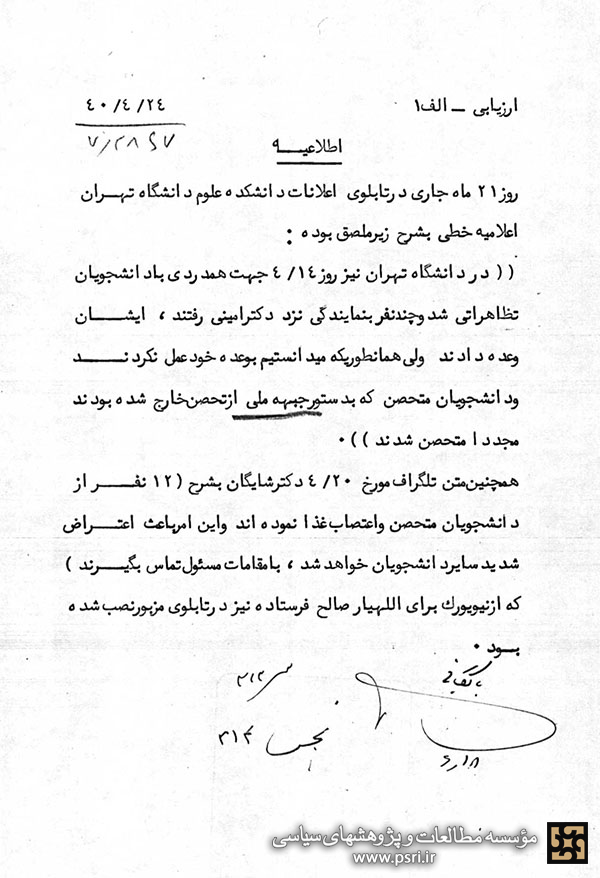 ارزیابی - الف۱
۴۰/۴/۲۴
اطلاعیـــه
روز ۲۱ ماه جاری در تابلوی اعلانات دانشکده علوم دانشگاه تهـران
اعلامیه خطی بشرح زیر ملصق بوده :
(( در دانشگاه تهران نیز روز ۴/۱۴ جهت همدردی با دانشجویان
تظاهراتی شد و چند نفر بنمایندگی نزد دکتر امینی رفتند ، ایشــان
وعده دادند ولی همانطوریکه میدانستیم بوعده خود عمل نکردنــد
و دانشجویان متحصن که بدستور جبهه ملی از تحصن خارج شده بودند
مجددا متحصن شدند )) ۰
همچنین متن تلگراف مورخ ۴/۲۰ دکتر شایگان بشرح ( ۱۲ نفـر از
دانشجویان متحصن و اعتصاب غذا نموده اند و این امر باعث اعتـراض
شدید سایر دانشجویان خواهد شد ، با مقامات مسئول تماس بگیـرند )
که از نیویورك برای اللهیار صالح فرستاده نیز در تابلوی مزبور نصب شده
بــود ۰
۳۱۴
مؤسسه مطالعات و پژوهشهای سیاسی
www.psri.ir